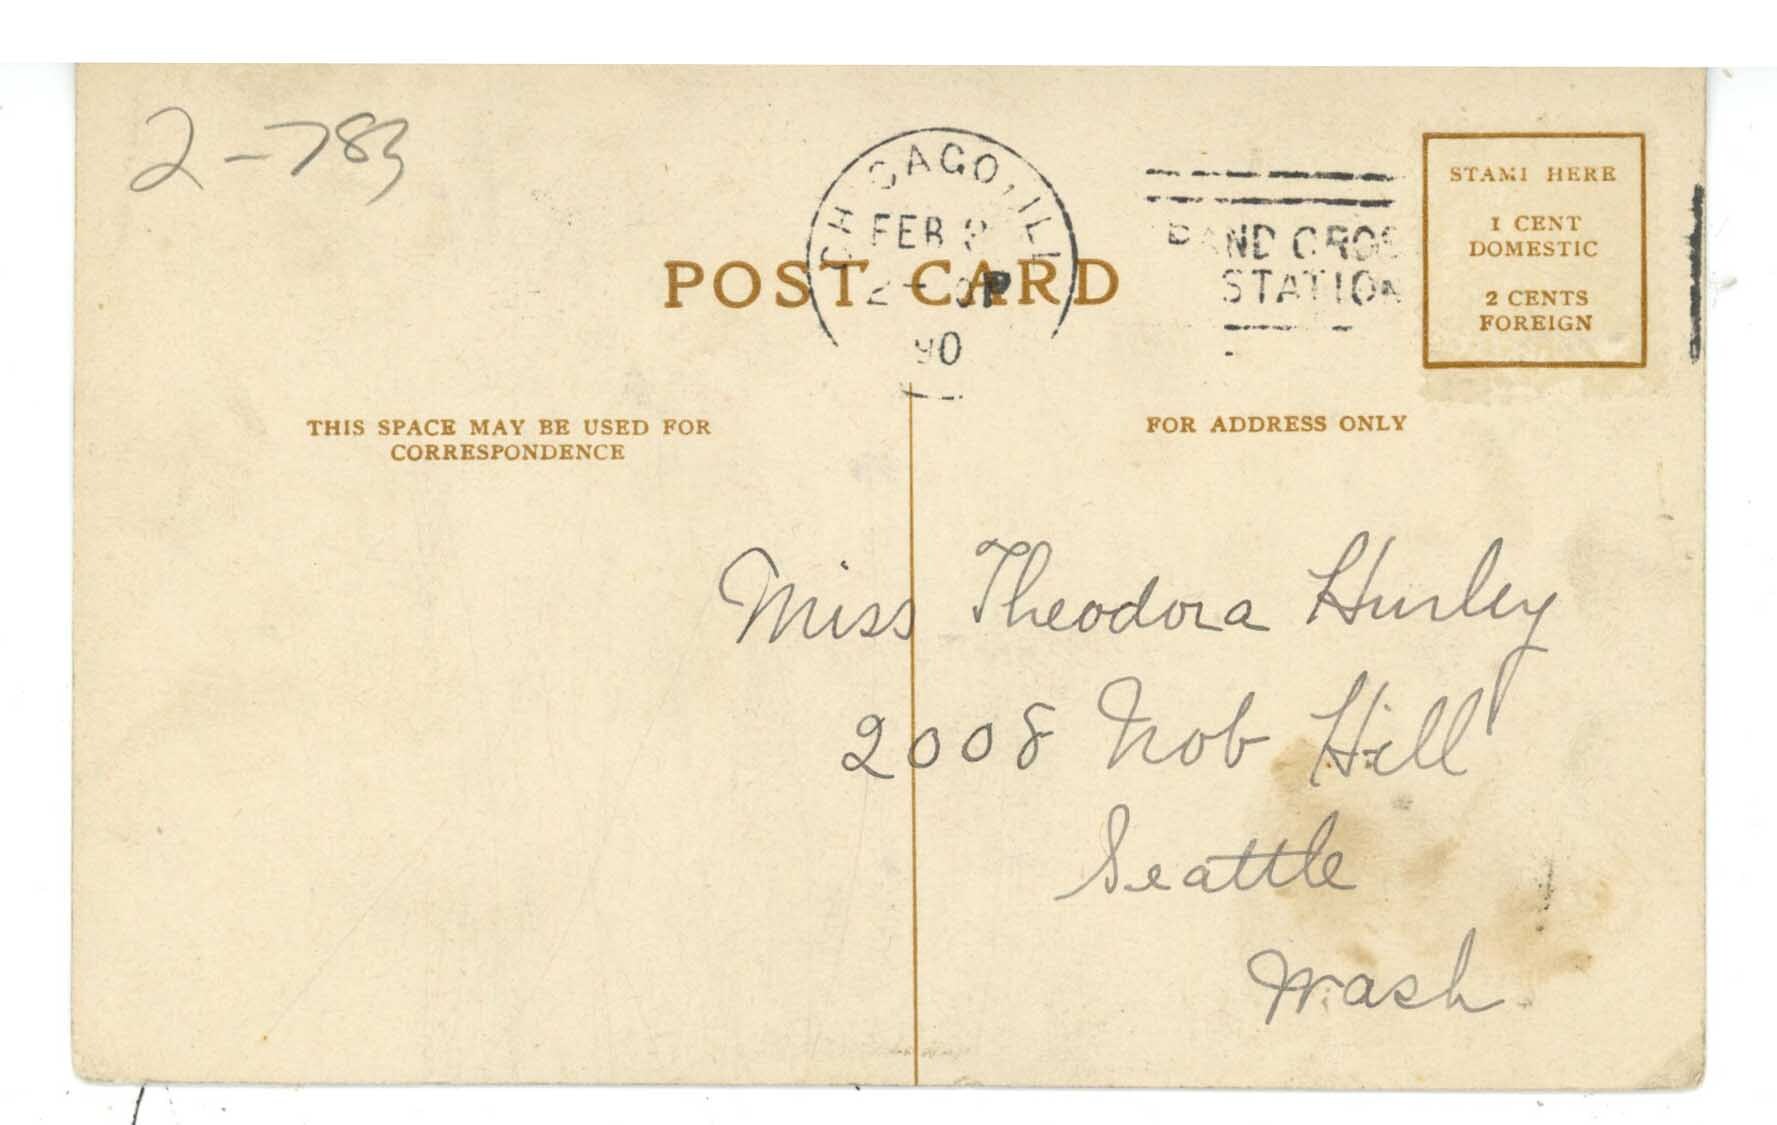 2-783
CHICAGO, ILL.
FEB
GRAND CROS
STATION
POST CARD
STAMP HERE
1 CENT
DOMESTIC
2 CENTS
FOREIGN
THIS SPACE MAY BE USED FOR
CORRESPONDENCE
FOR ADDRESS ONLY
Miss Theodora Hurley
2008 Nob Hill
Seattle
Wash